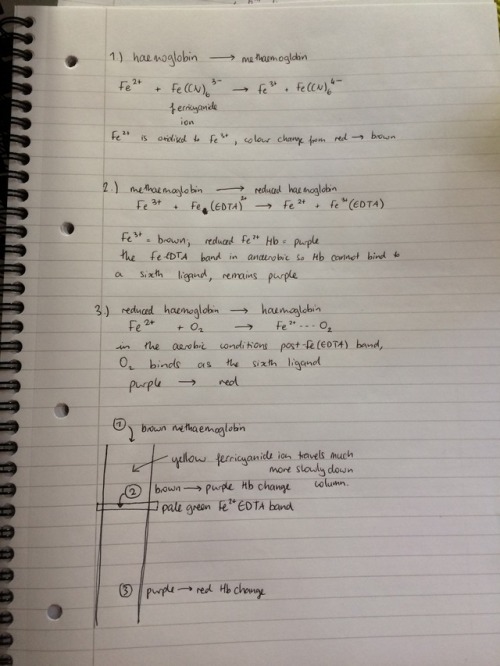 1) haemoglobin → methaemoglobin
Fe²⁺ + Fe(CN)₆³⁻ → Fe³⁺ + Fe(CN)₆⁴⁻
ferricyanide
ion
Fe²⁺ is oxidised to Fe³⁺, colour change from red → brown
2.) methaemoglobin → reduced haemoglobin
Fe³⁺ + Fe(EDTA)²⁺ → Fe²⁺ + Fe³⁺(EDTA)
Fe³⁺ = brown, reduced Fe²⁺ Hb = purple
the Fe-EDTA band in anaerobic so Hb cannot bind to
a sixth ligand, remains purple
3.) reduced haemoglobin → haemoglobin
Fe²⁺ + O₂ → Fe²⁺ --- O₂
in the aerobic conditions post-Fe(EDTA) band,
O₂ binds as the sixth ligand
purple → red
① brown methaemoglobin
yellow ferricyanide ion travels much
more slowly down
column.
② brown → purple Hb change
pale green Fe²⁺ EDTA band
③ purple → red Hb change